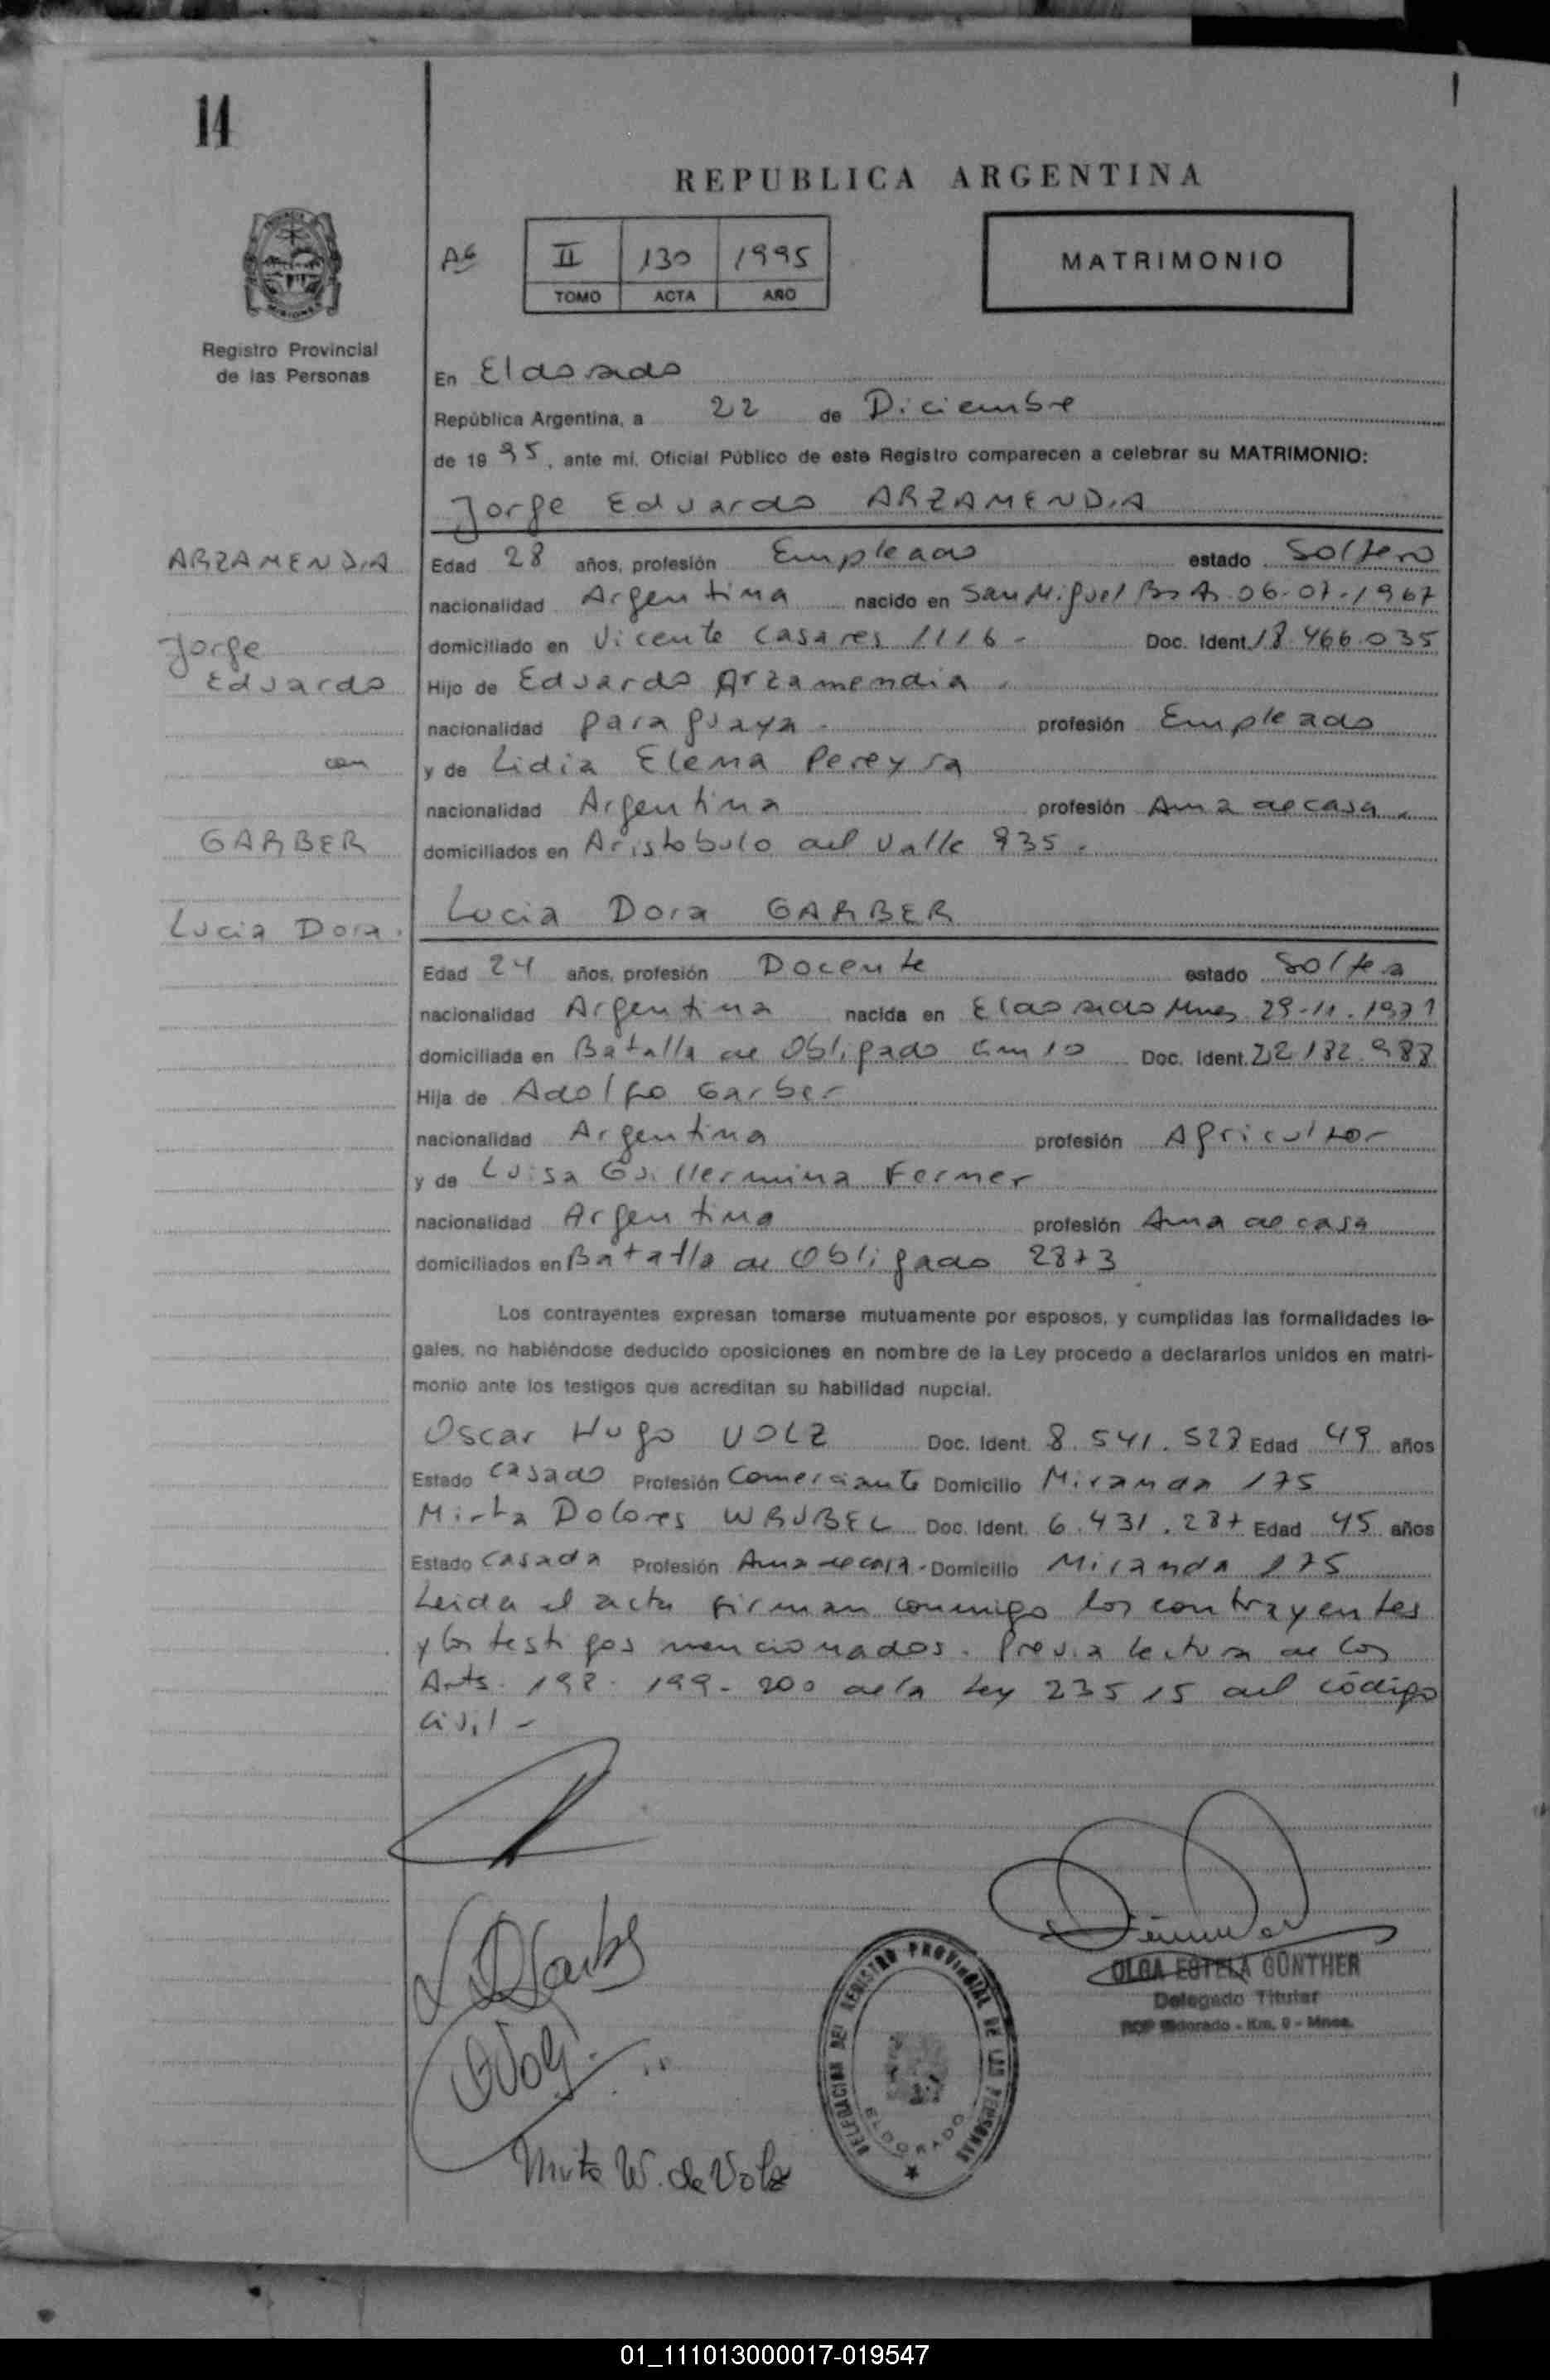 14
REPUBLICA ARGENTINA
II 130 1995
TOMO ACTA AÑO
MATRIMONIO
Registro Provincial
de las Personas
En Eldorado
República Argentina, a 22 de Diciembre
de 1995, ante mí, Oficial Público de este Registro comparecen a celebrar su MATRIMONIO:
Jorge Eduardo ARZAMENDIA
ARZAMENDIA
Jorge
Eduardo
con
GARBER
Lucia Dora.
Edad 28 años, profesión Empleado estado Soltero
nacionalidad Argentina nacido en San Miguel Bs As 06-07-1967
domiciliado en Vicente Casares 1116 - Doc. Ident. 18.466.035
Hijo de Eduardo Arzamendia.
nacionalidad paraguaya - profesión Empleado
y de Lidia Elena Pereyra
nacionalidad Argentina profesión Ama de casa.
domiciliados en Aristobulo del Valle 935.
Lucia Dora GARBER
Edad 24 años, profesión Docente estado Soltera
nacionalidad Argentina nacida en Eldorado Mnes 29-11-1971
domiciliada en Batalla de Obligado Km 10 Doc. Ident. 22.182.988
Hija de Adolfo Garber
nacionalidad Argentina profesión Agricultor
y de Luisa Guillermina Fermer
nacionalidad Argentina profesión Ama de casa
domiciliados en Batalla de Obligado 2873
Los contrayentes expresan tomarse mutuamente por esposos, y cumplidas las formalidades le-
gales, no habiéndose deducido oposiciones en nombre de la Ley procedo a declararlos unidos en matri-
monio ante los testigos que acreditan su habilidad nupcial.
Oscar Hugo VOLZ Doc. Ident. 8.541.528 Edad 49 años
Estado Casado Profesión Comerciante Domicilio Miranda 175
Mirta Dolores WRUBEL Doc. Ident. 6.431.287 Edad 45 años
Estado Casada Profesión Ama de casa - Domicilio Miranda 175
Leida el acta firman conmigo los contrayentes
y los testigos mencionados. Previa lectura de los
Arts. 198. 199. 200 de la Ley 23515 del código
civil -
Mirta W. de Volz
DELEGACION DEL REGISTRO PROVINCIAL DE LAS PERSONAS
ELDORADO
OLGA ESTELA GÜNTHER
Delegado Titular
RCP Eldorado - Km. 9 - Mnes.
01_111013000017-019547